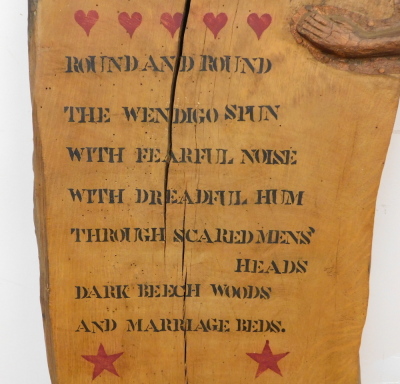 ROUND AND ROUND
THE WENDIGO SPUN
WITH FEARFUL NOISE
WITH DREADFUL HUM
THROUGH SCARED MENS'
HEADS
DARK BEECH WOODS
AND MARRIAGE BEDS.